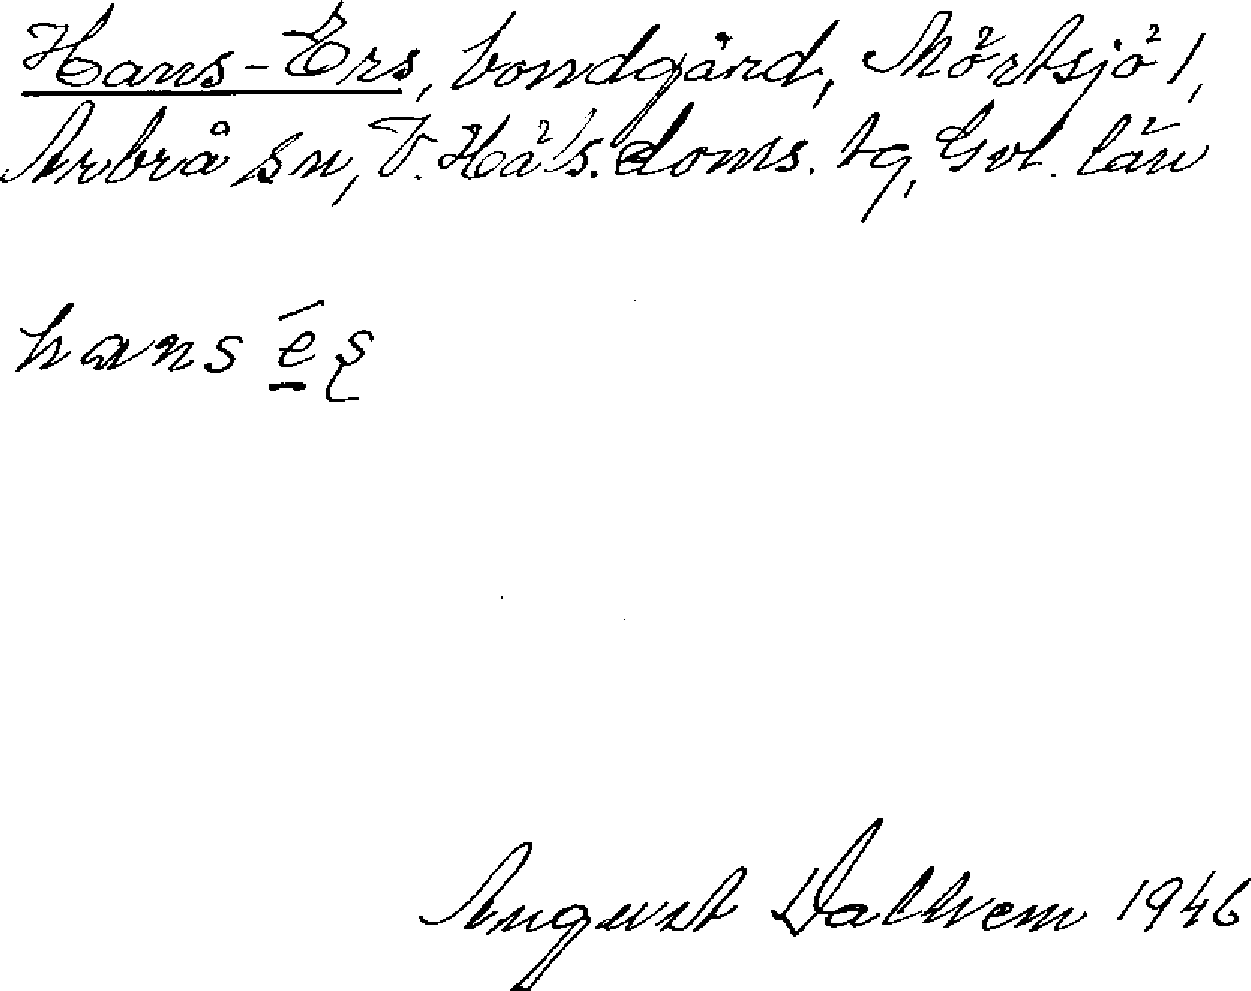 Hans-Ers, bondgård, Mörtsjö 1,
Arbrå sn, V. Hä's. doms. tg, Gvl. län
hans é̱ş
August Dalhem 1946